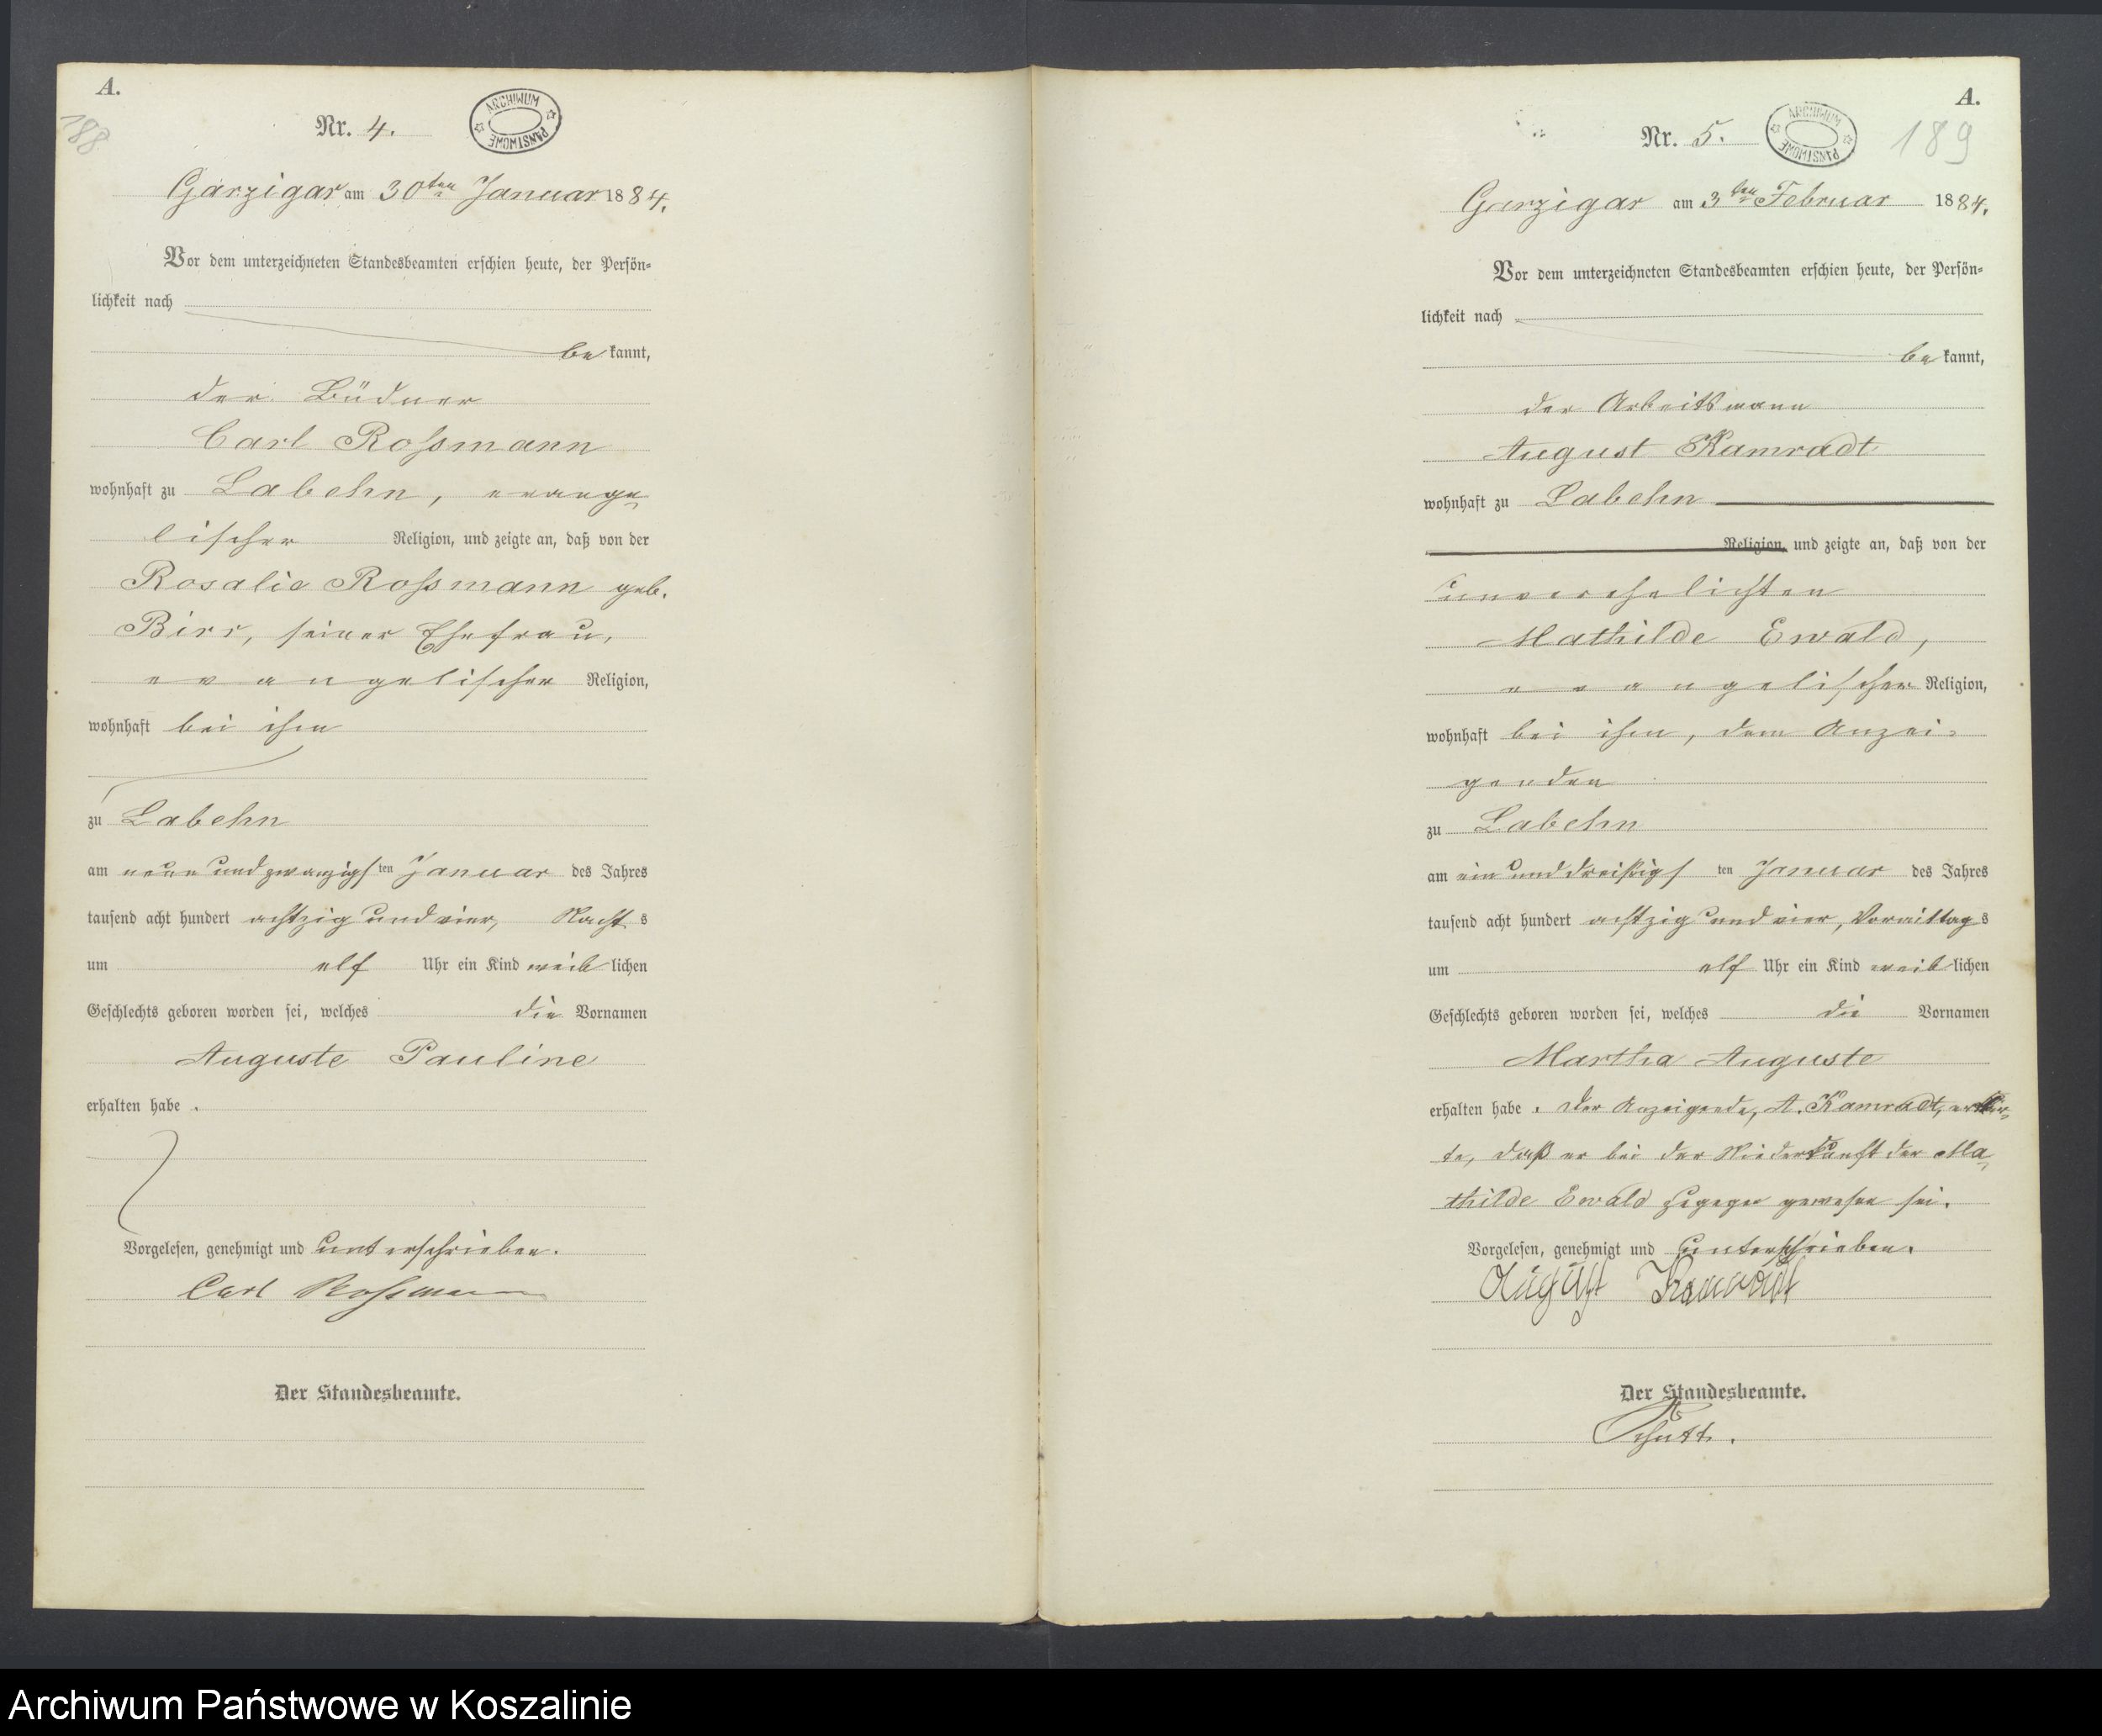 A.
188
Nr. 4.
ARCHIWUM PAŃSTWOWE
Garzigar am 30ten Januar 1884.
Vor dem unterzeichneten Standesbeamten erschien heute, der Persön-
lichkeit nach
bekannt,
der Büdner
Carl Roßmann
wohnhaft zu Labehn, evange-
lischer Religion, und zeigte an, daß von der
Rosalie Roßmann geb.
Birr, seiner Ehefrau,
evangelischer Religion,
wohnhaft bei ihm
zu Labehn
am neun und zwanzigsten Januar des Jahres
tausend acht hundert achtzig und vier, Nachts
um elf Uhr ein Kind weiblichen
Geschlechts geboren worden sei, welches die Vornamen
Auguste Pauline
erhalten habe.
Vorgelesen, genehmigt und unterschrieben.
Carl Roßmann
Der Standesbeamte.
A.
Nr. 5.
ARCHIWUM PAŃSTWOWE
189
Garzigar am 3ten Februar 1884.
Vor dem unterzeichneten Standesbeamten erschien heute, der Persön-
lichkeit nach
bekannt,
der Arbeitsmann
August Kamradt
wohnhaft zu Labehn
Religion, und zeigte an, daß von der
unverehelichten
Mathilde Ewald,
evangelischer Religion,
wohnhaft bei ihm, dem Anzei-
genden
zu Labehn
am ein und dreißigsten Januar des Jahres
tausend acht hundert achtzig und vier, Vormittags
um elf Uhr ein Kind weiblichen
Geschlechts geboren worden sei, welches die Vornamen
Martha Auguste
erhalten habe. Der Anzeigende, A. Kamradt, erklär-
te, daß er bei der Niederkunft der Ma-
thilde Ewald zugegen gewesen sei.
Vorgelesen, genehmigt und unterschrieben.
August Kamradt
Der Standesbeamte.
Archiwum Państwowe w Koszalinie